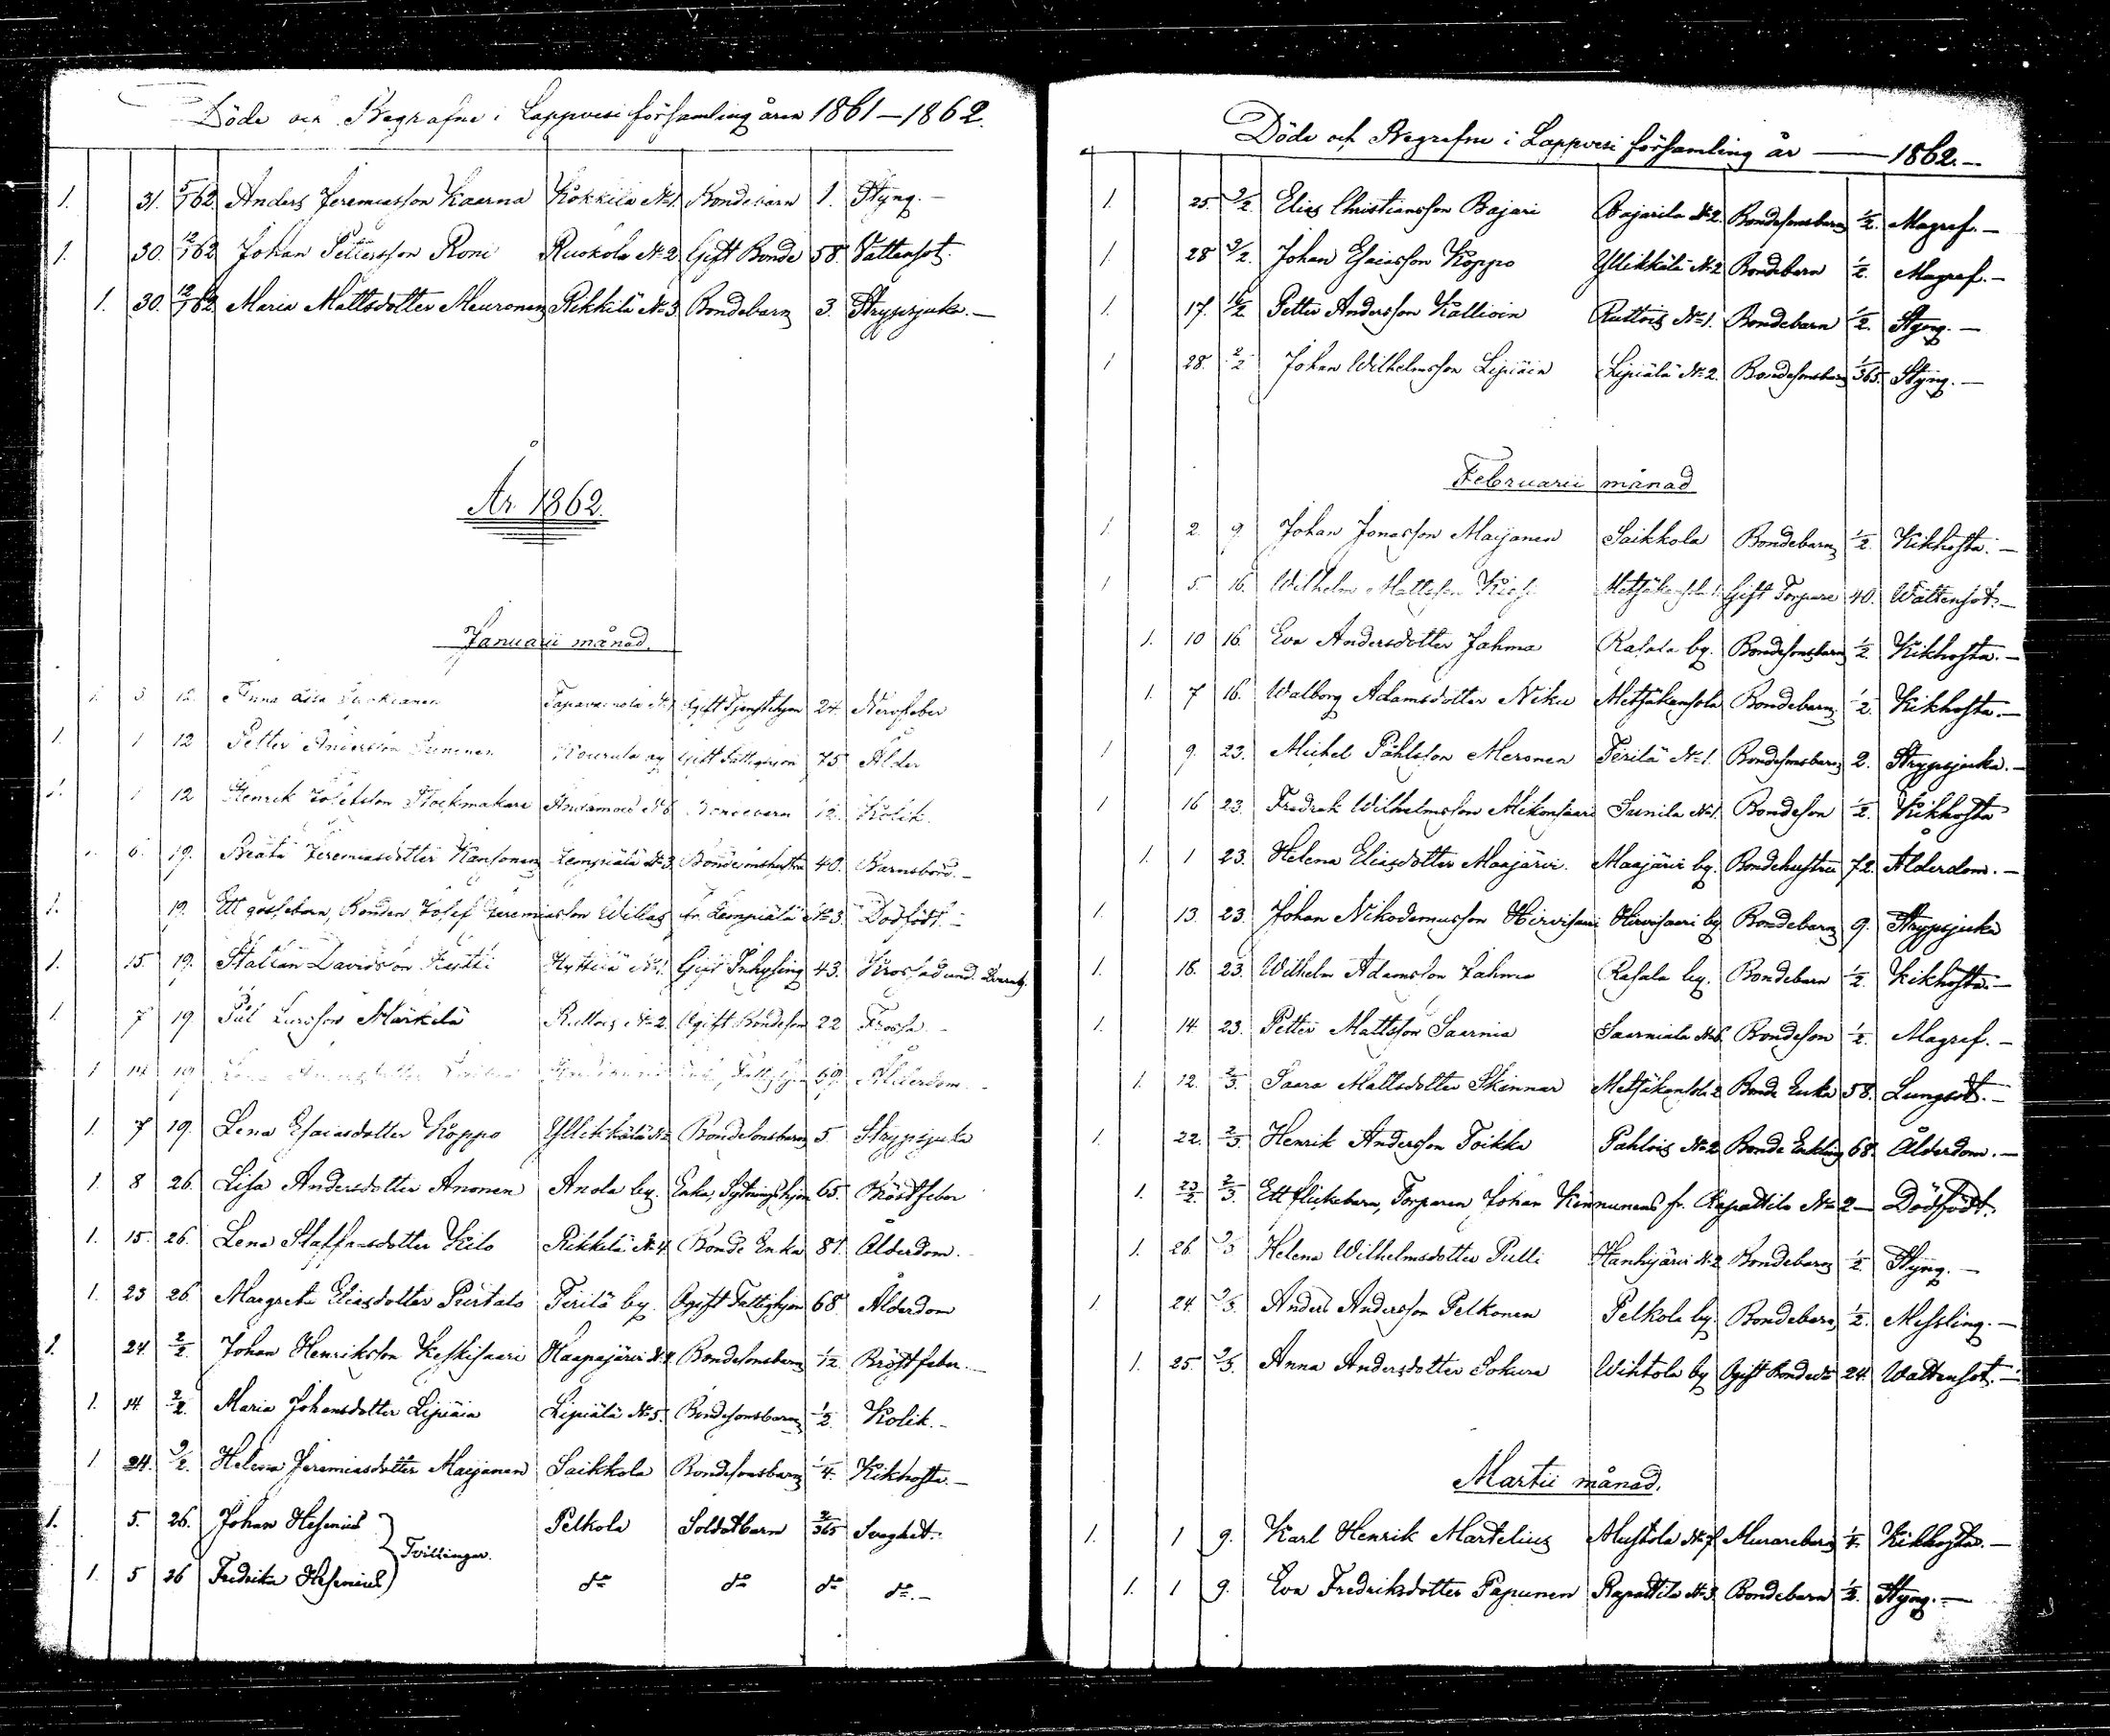 Döde och Begrafne i Lappvesi församling åren 1861–1862.
1. 31. 5/1 62. Anders Jeremiasson Kaarna Kokkila No 1. Bondebarn 1. Styng.–
1. 30. 12/1 62 Johan Pettersson Roni Ruokola No 2. Gift Bonde 58. Vattensot.
1. 30. 12/1 62. Maria Mattsdotter Meuronen Rikkilä No 3. Bondebarn 3. Strypsjuka.–
År 1862.
Januarii månad.
1. 3 12. Anna 24. Nervfeber
1. 1 12 Petter Andersson Kourula by Gift Fattighjon 75 Ålder
1. 1 12 Henrik Josefsson Bondebarn Kolik.
1. 6. 19. Beata Jeremiasdotter Kansonen Lempiälä No 3. 40. Barnsbörd.–
1. 19. Ett gossebarn, Bonden Josef Jeremiasson Willas fr. Lempiälä No 3. Dödfödt.–
1. 15. 19. Staffan Davidsson Hyttilä No 1. Gift Inhysing 43. Krossad und.
1. 7 19. Pål Larsson Märkilä Ruttois No 2. Ogift Bondeson 22 Frossa.–
1 14 19 Lena 69. Ålderdom.–
1. 7 19. Lena Esaiasdotter Koppo Yllikkälä No Bondesonsbarn 5. Strypsjuka
1. 8 26. Lisa Andersdotter Anonen Anola by. Enka, Sytningshjon 65. Röstfeber
1. 15. 26. Lena Staffansdotter Kilo Rikkilä No 4. Bonde Enka 81. Ålderdom.
1. 23 26. Margreta Eliasdotter Purtalo Tirilä by. Ogift Fattighjon 68. Ålderdom
1. 24. 2/2. Johan Henriksson Keskisaari Haapajärvi No 4. Bondesonsbarn 1/12. Bröstfeber.–
1. 14. 2/2. Maria Johansdotter Lipiäin Lipiälä No 5. Bondesonsbarn 1/2. Kolik.–
1 24. 9/2. Helena Jeremiasdotter Maijanen Saikkola Bondesonsbarn 1/4. Kikhosta.–
1. 5. 26. Johan Hesenius Pelkola Soldatbarn 2/365 Svaghet.
Tvillingar.
1. 5 26 Fredrika Hesenius do do do do.–
Döde och Begrafne i Lappvesi församling år — 1862.–
1. 25. 9/2. Elias Christiansson Bajari Bajarila No 2. Bondesonsbarn 1/2. Magref.–
1 28 9/2. Johan Esaiasson Koppo Yllikkälä No 2 Bondebarn 1/2. Magref.–
1. 17. 16/2. Petter Andersson Kallioin Ruttois No 1. Bondebarn 1/2. Styng.–
1 28. 2/2 Johan Wilhelmsson Lipiäin Lipiälä No 2. Bondesonsbarn 1/365. Styng.–
Februarii månad
1. 2. 9. Johan Jonasson Maijanen Saikkola Bondebarn 1/2. Kikhosta.–
1 5. 16. Wilhelm Mattsson Metsäkansola Gift Torpare 40. Wattensot.–
1. 10 16. Eva Andersdotter Jahma Rasala by. Bondesonsbarn 1/2. Kikhosta.–
1. 7 16. Walborg Adamsdotter Niku Metsäkansola Bondebarn 1/2. Kikhosta.–
1 9. 23. Michel Påhlsson Meronen Tirilä No 1. Bondesonsbarn 2. Strypsjuka.–
1 16 23. Fredrik Wilhelmsson Mikonsaari Sunila No 1. Bondeson 1/2. Kikhosta
1. 1 23. Helena Eliasdotter Maajärvi. Maajärvi by. Bondehustru 72. Ålderdom.–
1. 13. 23. Johan Nikodemusson Hirvisaari Hirvisaari by. Bondebarn 9. Strypsjuka
1. 18. 23. Wilhelm Adamsson Jahma Rasala by. Bondebarn 1/2. Kikhosta.–
1. 14. 23. Petter Mattsson Saarnia Saarniala No 6. Bondeson 1/2. Magref.–
1. 12. 2/3. Saara Mattsdotter Skinnar Metsäkansola 2 Bonde Enka 58. Lungsot.–
1. 22. 2/3. Henrik Andersson Toikka Pahlois No 2 Bonde Enkling 68. Ålderdom.–
1. 23/2. 2/3. Ett flickebarn, Torparen Johan Kinnunens fr. Rapattila No 2 – Dödfödt.
1. 26. 9/3 Helena Wilhelmsdotter Pulli Hanhijärvi No 2 Bondebarn 1/2. Styng.–
1. 24. 9/3. Anders Andersson Pelkonen Pelkola by. Bondebarn 1/2. Messling.–
1. 25. 9/3. Anna Andersdotter Sokura Wihtola by Ogift 24. Wattensot.–
Martii månad.
1. 1 9. Karl Henrik Martelius Mustola No 7. Murarebarn 1/4. Kikhosta.–
1. 1 9. Eva Fredriksdotter Papunen Rapattila No 3. Bondebarn 1/2. Styng.–